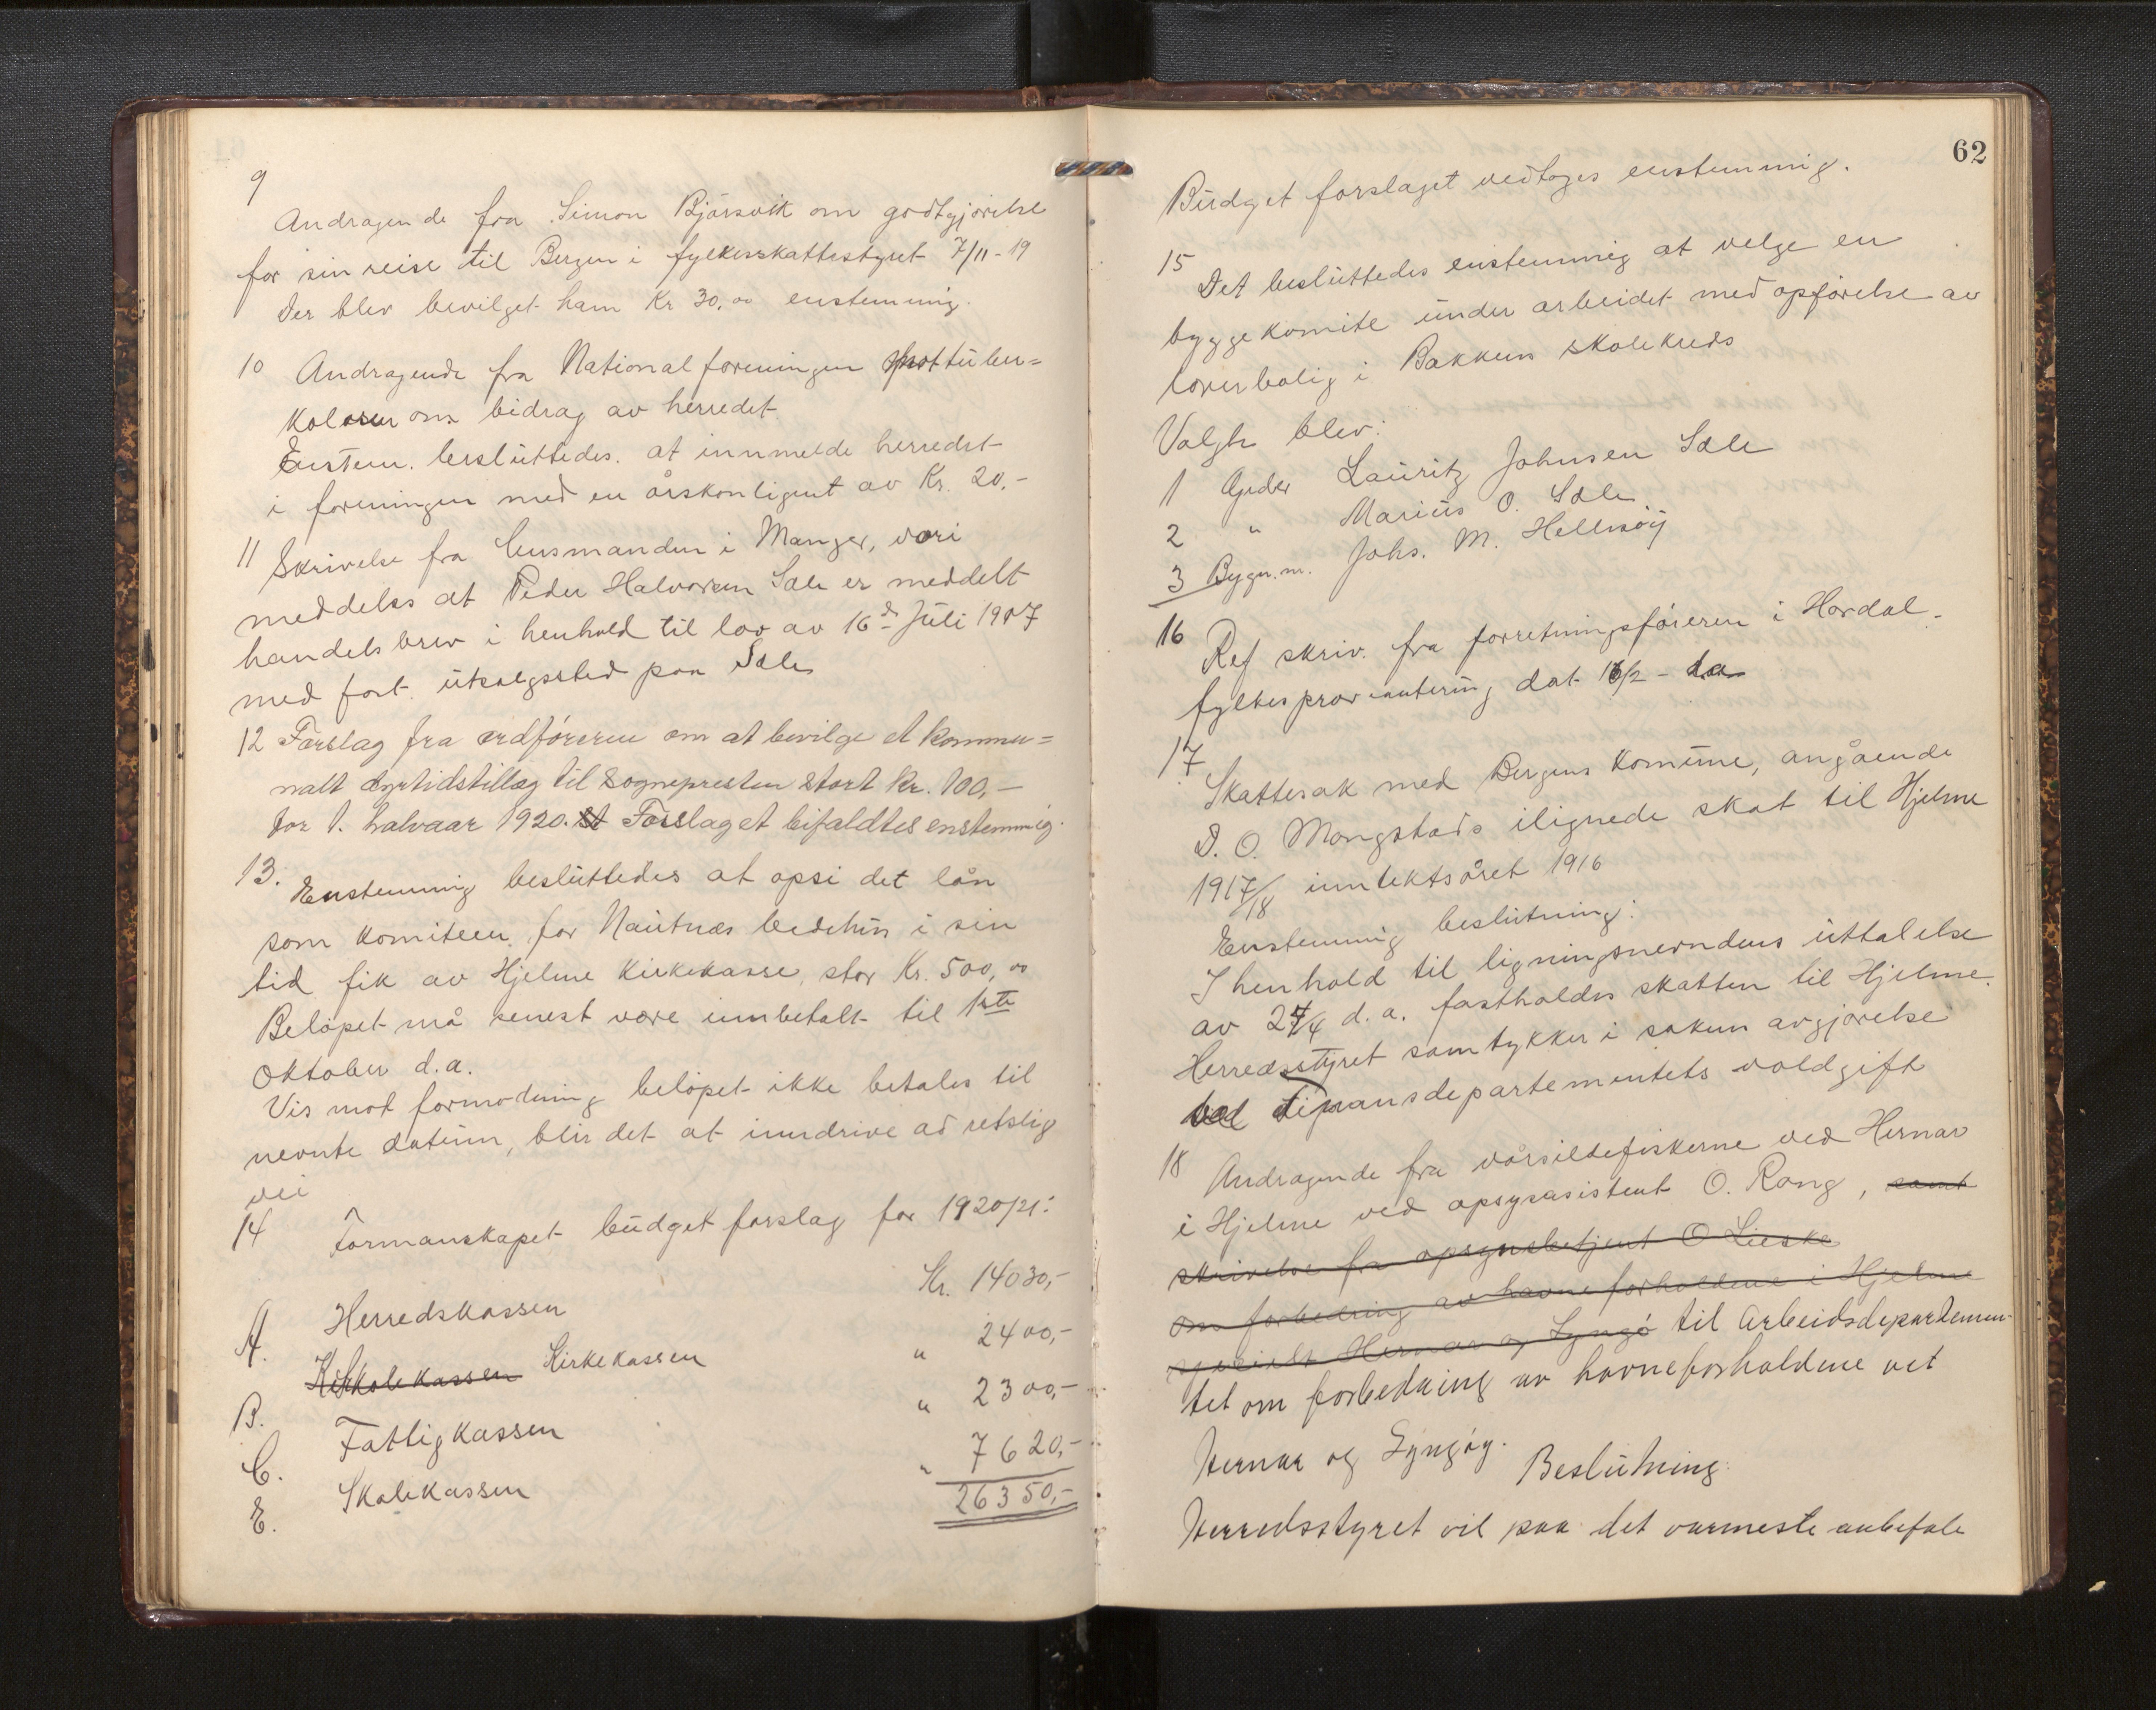 9
Andragende fra Simon Bjørsvik om godtgjørelse
for sin reise til Bergen i fylkesskattestyret 7/11-19
Der blev bevilget ham Kr 30,00 enstemmig.
10 Andragende fra Nationalforeningen mot tuber=
kolosen om bidrag av herredet
Enstem. besluttedes. at innmelde herredet
i foreningen med en årskontigent av Kr. 20.-
11 Skrivelse fra lensmanden i Manger, vori
meddeles at Peder Halvorsen Sæle er meddelt
handelsbrev i henhold til lov av 16de Juli 1907
med fast utsalgssted paa Sæle
12 Forslag fra ordføreren om at bevilge et kommu=
nalt dyrtidstillæg til Sognepresten stort kr. 100,-
for 1. halvaar 1920. Forslaget bifaldtes enstemmig.
13. Enstemmig besluttedes at opsi det lån
som komiteen for Nautnes bedehus i sin
tid fik av Hjelme Kirkekasse, stor Kr. 500,00
Beløpet må senest være innbetalt til 1ste
Oktober d.a.
Vis mot formodning beløpet ikke betales til
nevnte datum, blir det at inndrive ad retslig
vei
14 Formanskapet budget forslag for 1920/21:
A. Herredskassen Kr. 14030,-
B. Skolekassen Kirkekassen " 2400,-
C. Fattigkassen " 2300,-
E. Skolekassen " 7620,-
26350,-
62
Budget forslaget vedtoges enstemmig.
15 Det besluttedes enstemmig at velge en
byggekomite under arbeidet med opførelse av
lærerbolig i Bakkens skolekreds
Valgte blev:
1 Grdbr Lauritz Johnsen Sæle
2 " Marius O. Sæle
3 Bygn.m. Johs. M. Hellesøy
16 Ref skriv. fra forretningsføreren i Hordal-
fylkes proviantering dat 16/2 - d.a.
17
Skattesak med Bergens Komune, angående
D. O. Mongstads ilignede skat til Hjelme
1917/18 inntektsåret 1916
Enstemmig beslutning:
I henhold til ligningsnevndens uttalelse
av 24/4 d.a. fastholdes skatten til Hjelme.
Herredsstyret samtykker i sakens avgjørelse
ved Finansdepartementets voldgift
18 Andragende fra vårsildefiskerne ved Hernar
i Hjelme ved opsynasistent O. Rong, samt
skrivelse fra opsynsbetjent O Lieske
om forbedring av havneforholdene i Hjelme
specielt Hernar og Lyngø til Arbeidsdepartemen-
tet om forbedring av havneforholdene vet
Hernar og Lyngøy.
Beslutning:
Herredsstyret vil paa det varmeste anbefale